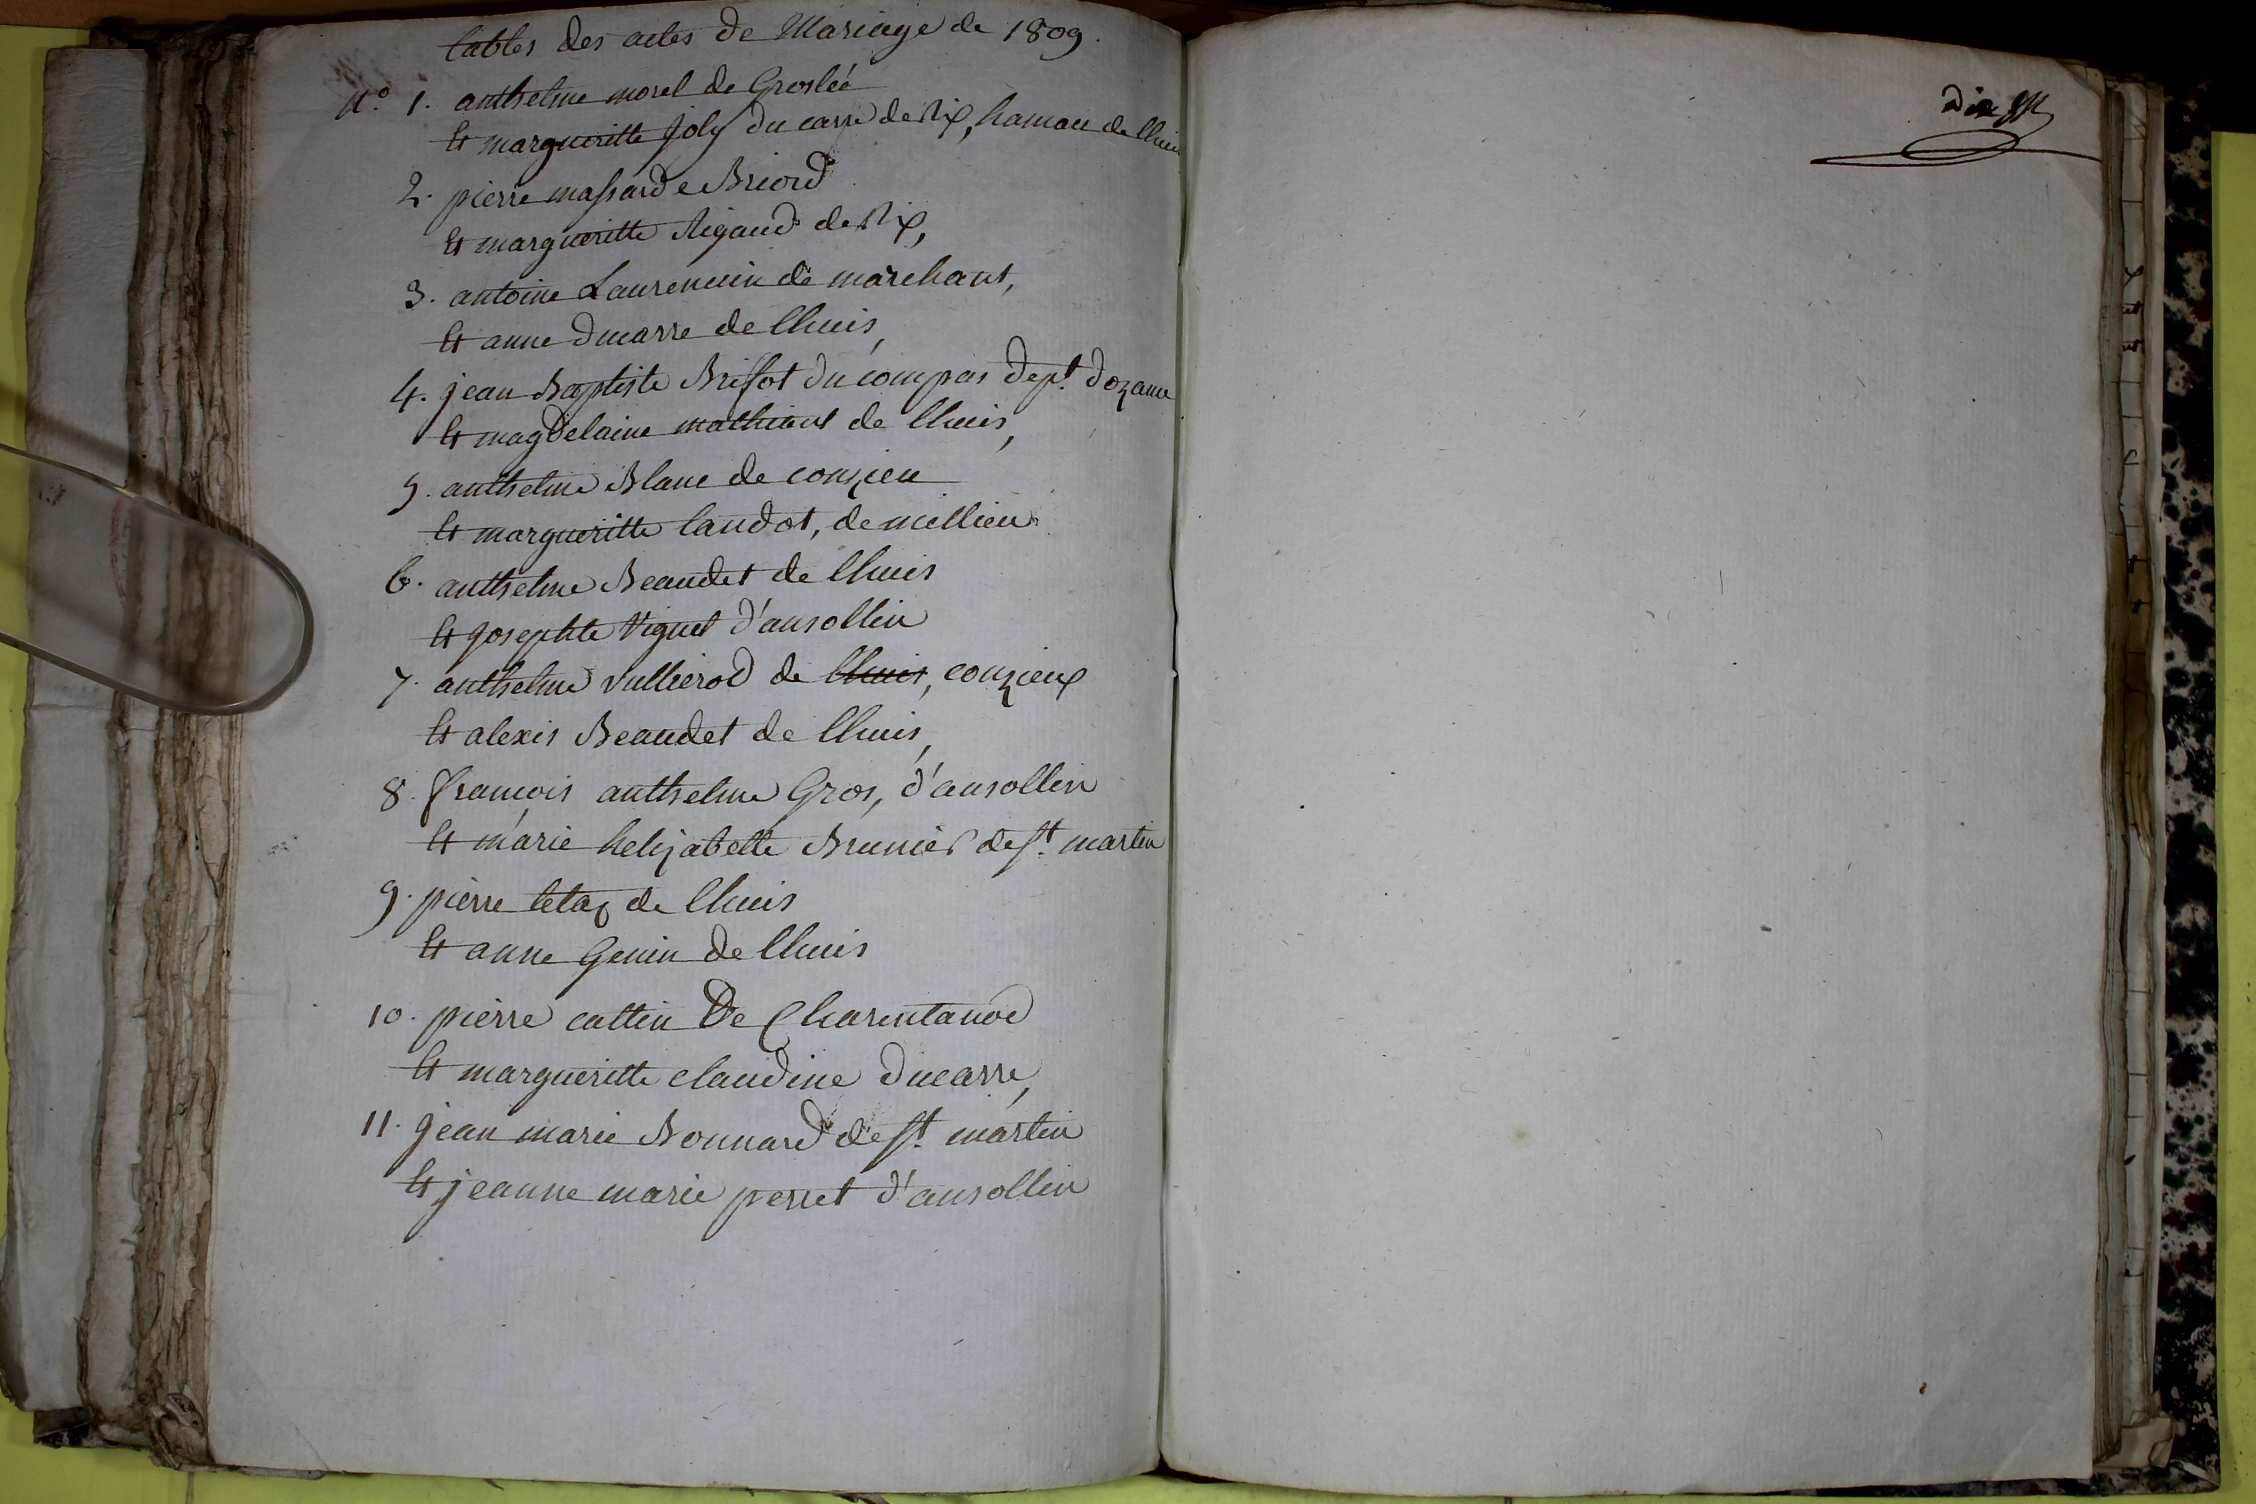 tables des actes de Mariage de 1809.
N.o 1. anthelme morel de Groslée
et margueritte Joly du carre de Rix, hamau de lhuis
2. pierre massard e Briord
et margueritte Rigaud de Rix,
3. antoine Laurencin de marchant,
et anne ducarre de lhuis,
4. jean Baptiste Brissot du compas dept.
et magdelaine mathieut de lhuis,
5. anthelme Blanc de conzieu
et margueritte landot, de millieu
6. anthelme Beaudet de lhuis
et Josephte Viguet d'ansollin
7. anthelme vullierod de lhuis, conzieux
et alexis Beaudet de lhuis,
8. françois anthelme Gros, d'ansollin
et marie helizabette Brunier de st. martin
9. pierre tetaz de lhuis
et anne Genin de lhuis
10. pierre cattin De Charentanod
et margueritte claudine ducarre,
11. jean marie Bonnard de st. martin
et jeanne marie perret d'ansollin
dix